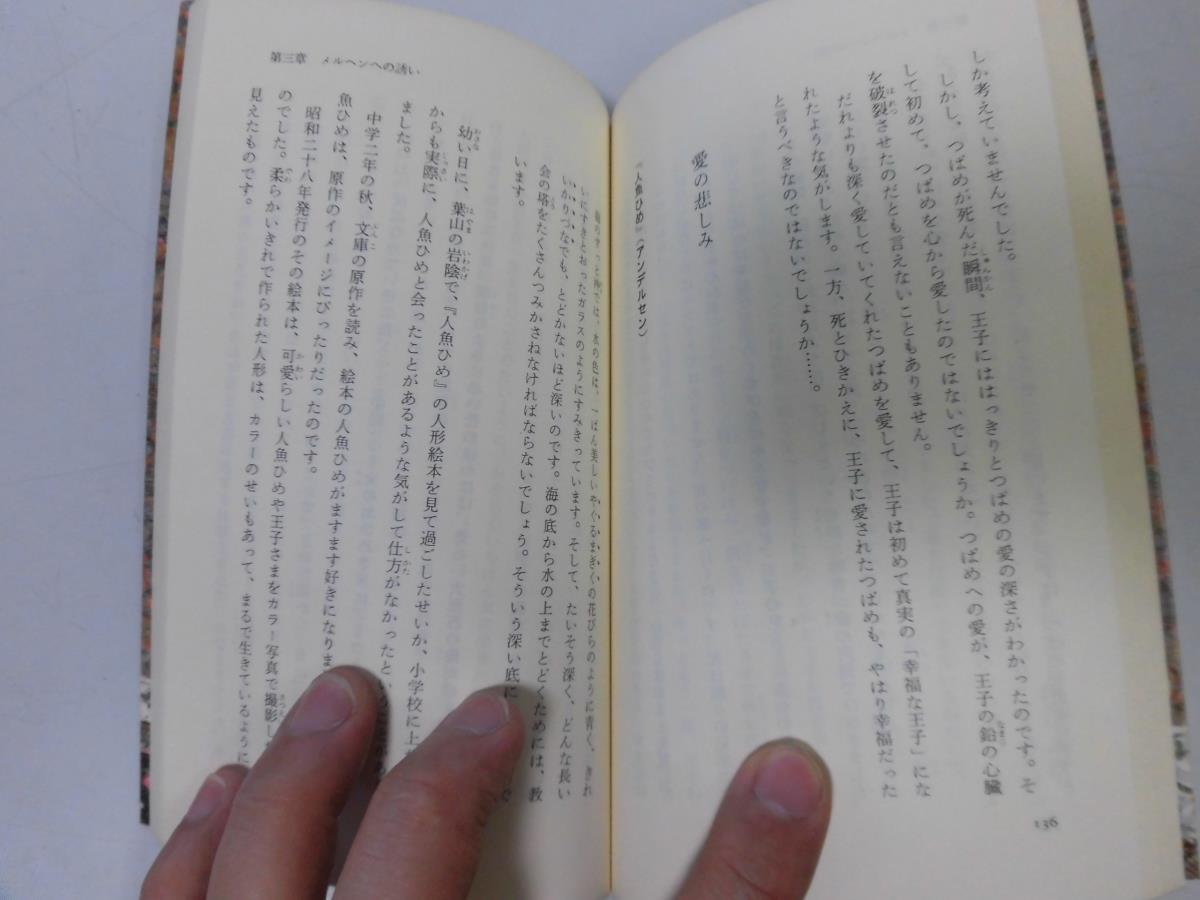 しか考えていませんでした。
しかし、つばめが死んだ瞬間、王子にははっきりとつばめの愛の深さがわかったのです。そ
して初めて、つばめを心から愛したのではないでしょうか。つばめへの愛が、王子の鉛の心臓
を破裂させたのだとも言えないこともありません。
だれよりも深く愛していてくれたつばめを愛して、王子は初めて真実の「幸福な王子」にな
れたような気がします。一方、死とひきかえに、王子に愛されたつばめも、やはり幸福だった
と言うべきなのではないでしょうか……。
愛の悲しみ
『人魚ひめ』(アンデルセン)
136
では、水の色は、一ばん美しいやぐるまぎくの花びらのように青く、きれ
いにすきとおったガラスのようにすみきっています。そして、たいそう深く、どんな長い
いかりづなでも、とどかないほど深いのです。海の底から水の上までとどくためには、教
会の塔をたくさんつみかさねなければならないでしょう。そういう深い底に
います。
幼い日に、葉山の岩陰で、『人魚ひめ』の人形絵本を見て過ごしたせいか、小学校に上
からも実際に、人魚ひめと会ったことがあるような気がして仕方がなかったという
ました。
中学二年の秋、文庫の原作を読み、絵本の人魚ひめがますます好きになりま
魚ひめは、原作のイメージにぴったりだったのです。
昭和二十八年発行のその絵本は、可愛らしい人魚ひめや王子さまをカラー写真で撮影し
のでした。柔らかいきれで作られた人形は、カラーのせいもあって、まるで生きているように
見えたものです。
第三章 メルヘンへの誘い